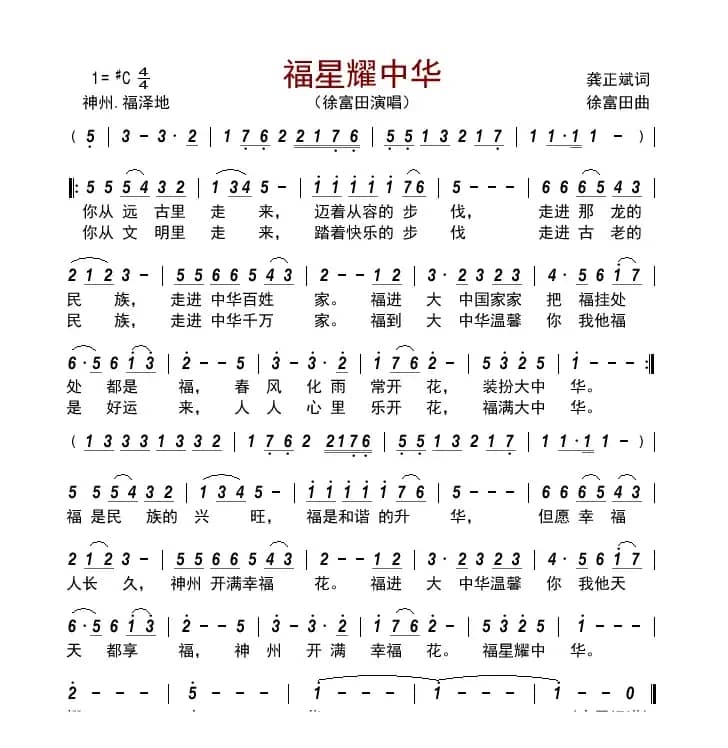 福星耀中华
1=♯C 4/4 龚正斌词
神州.福泽地 （徐富田演唱） 徐富田曲
( 5 | 3 - 3· 2 | 1 7 6 2 2 1 7 6 | 5 5 1 3 2 1 7 | 1 1·1 1 - )
‖: 5 5 5 4 3 2 | 1 3 4 5 - | 1 1 1 1 1 7 6 | 5 - - - | 6 6 6 5 4 3 |
你从 远 古里 走 来， 迈着从容的 步 伐， 走进 那 龙的
你从 文 明里 走 来， 踏着快乐的 步 伐 走进 古 老的
2 1 2 3 - | 5 5 6 6 5 4 3 | 2 - 1 2 | 3· 2 3 2 3 | 4· 5 6 1 7 |
民 族， 走进 中华百姓 家。 福进 大 中国家家 把 福挂处
民 族， 走进 中华千万 家。 福到 大 中华温馨 你 我他福
6· 5 6 1 3 | 2 - - 5 | 3 - 3· 2 | 1 7 6 2 - | 5 3 2 5 | 1 - - - :‖
处 都是 福， 春 风 化 雨 常开 花， 装扮大中 华。
是 好运 来， 人 人 心 里 乐开 花， 福满大中 华。
( 1 3 3 3 1 3 3 2 | 1 7 6 2 2 1 7 6 | 5 5 1 3 2 1 7 | 1 1·1 1 - )
5 5 5 4 3 2 | 1 3 4 5 - | 1 1 1 1 1 7 6 | 5 - - - | 6 6 6 5 4 3 |
福 是民 族的 兴 旺， 福是和谐 的升 华， 但愿 幸 福
2 1 2 3 - | 5 5 6 6 5 4 3 | 2 - 1 2 | 3· 2 3 2 3 | 4· 5 6 1 7 |
人长 久， 神州 开满幸福 花。 福进 大 中华温馨 你 我他天
6· 5 6 1 3 | 2 - - 5 | 3 - 3· 2 | 1 7 6 2 - | 5 3 2 5 | 1 - - - |
天 都享 福， 神 州 开 满 幸福 花。 福星耀中 华。
2 - - - | 5 - - - | 1 - - - | 1 - - - | 1 - - 0 ‖